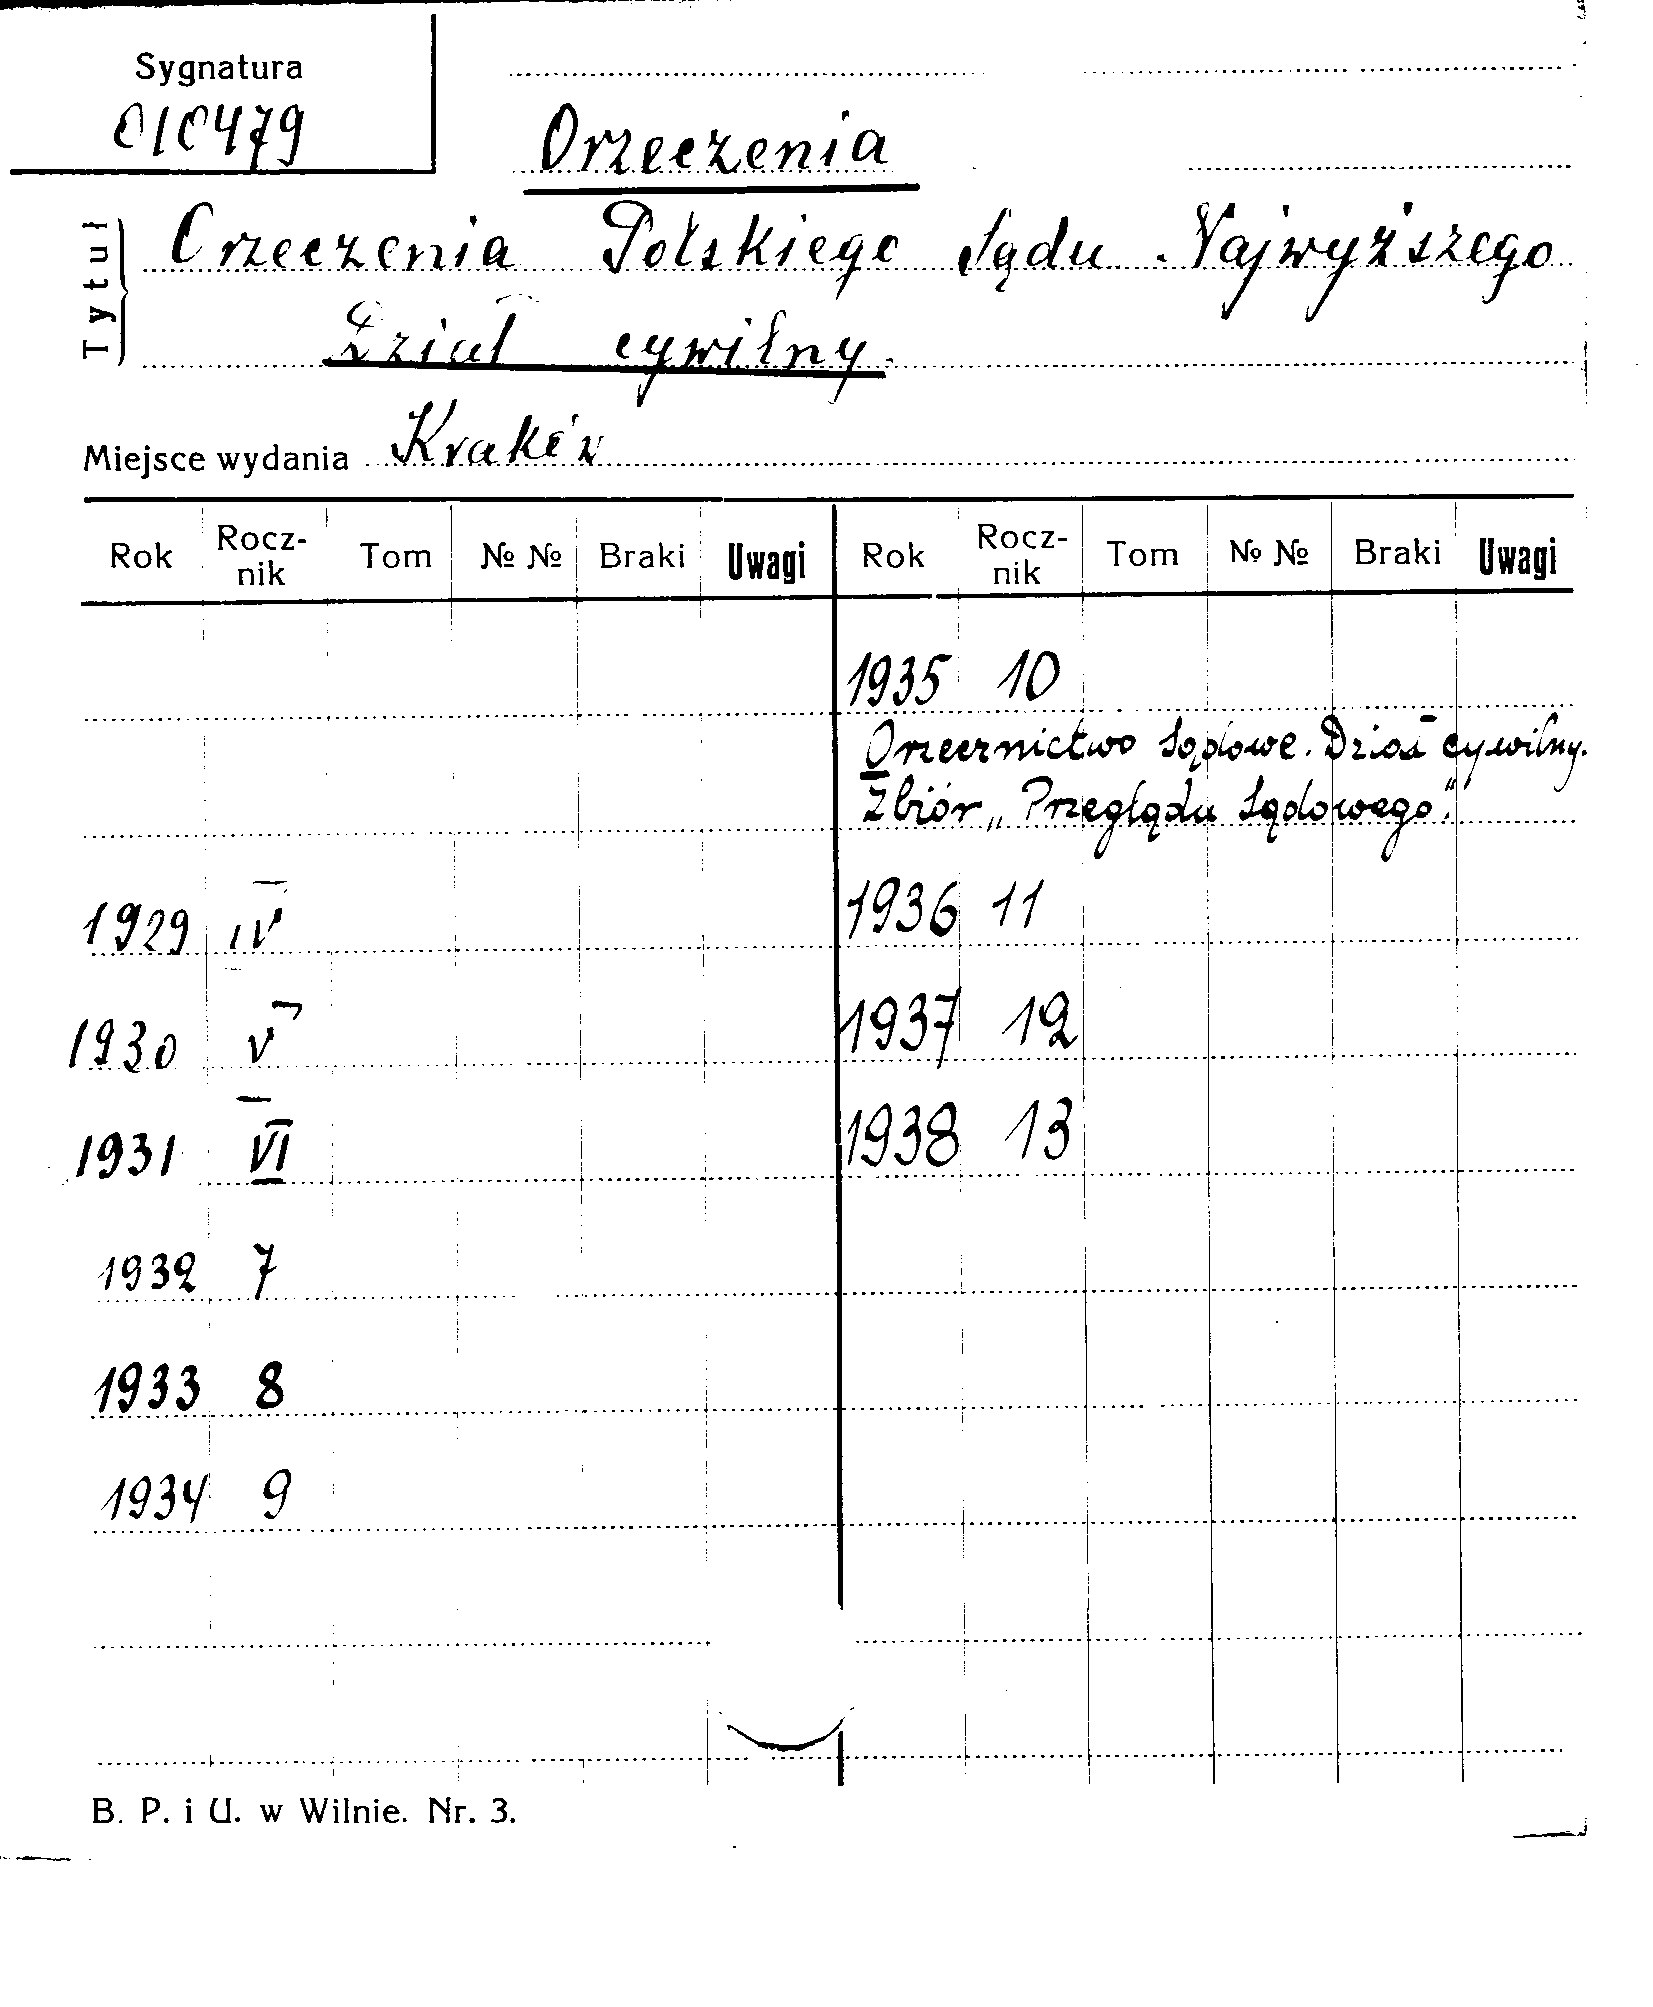 Sygnatura
010479
Orzeczenia
Tytuł
Orzeczenia Polskiego Sądu Najwyższego
Dział cywilny.
Miejsce wydania Kraków
Rok Rocz-nik Tom № № Braki Uwagi Rok Rocz-nik Tom № № Braki Uwagi
1929 IV
1930 V
1931 VI
1932 7
1933 8
1934 9
1935 10
Orzecznictwo Sądowe. Dział cywilny.
Zbiór „Przeglądu Sądowego".
1936 11
1937 12
1938 13
B. P. i U. w Wilnie. Nr. 3.